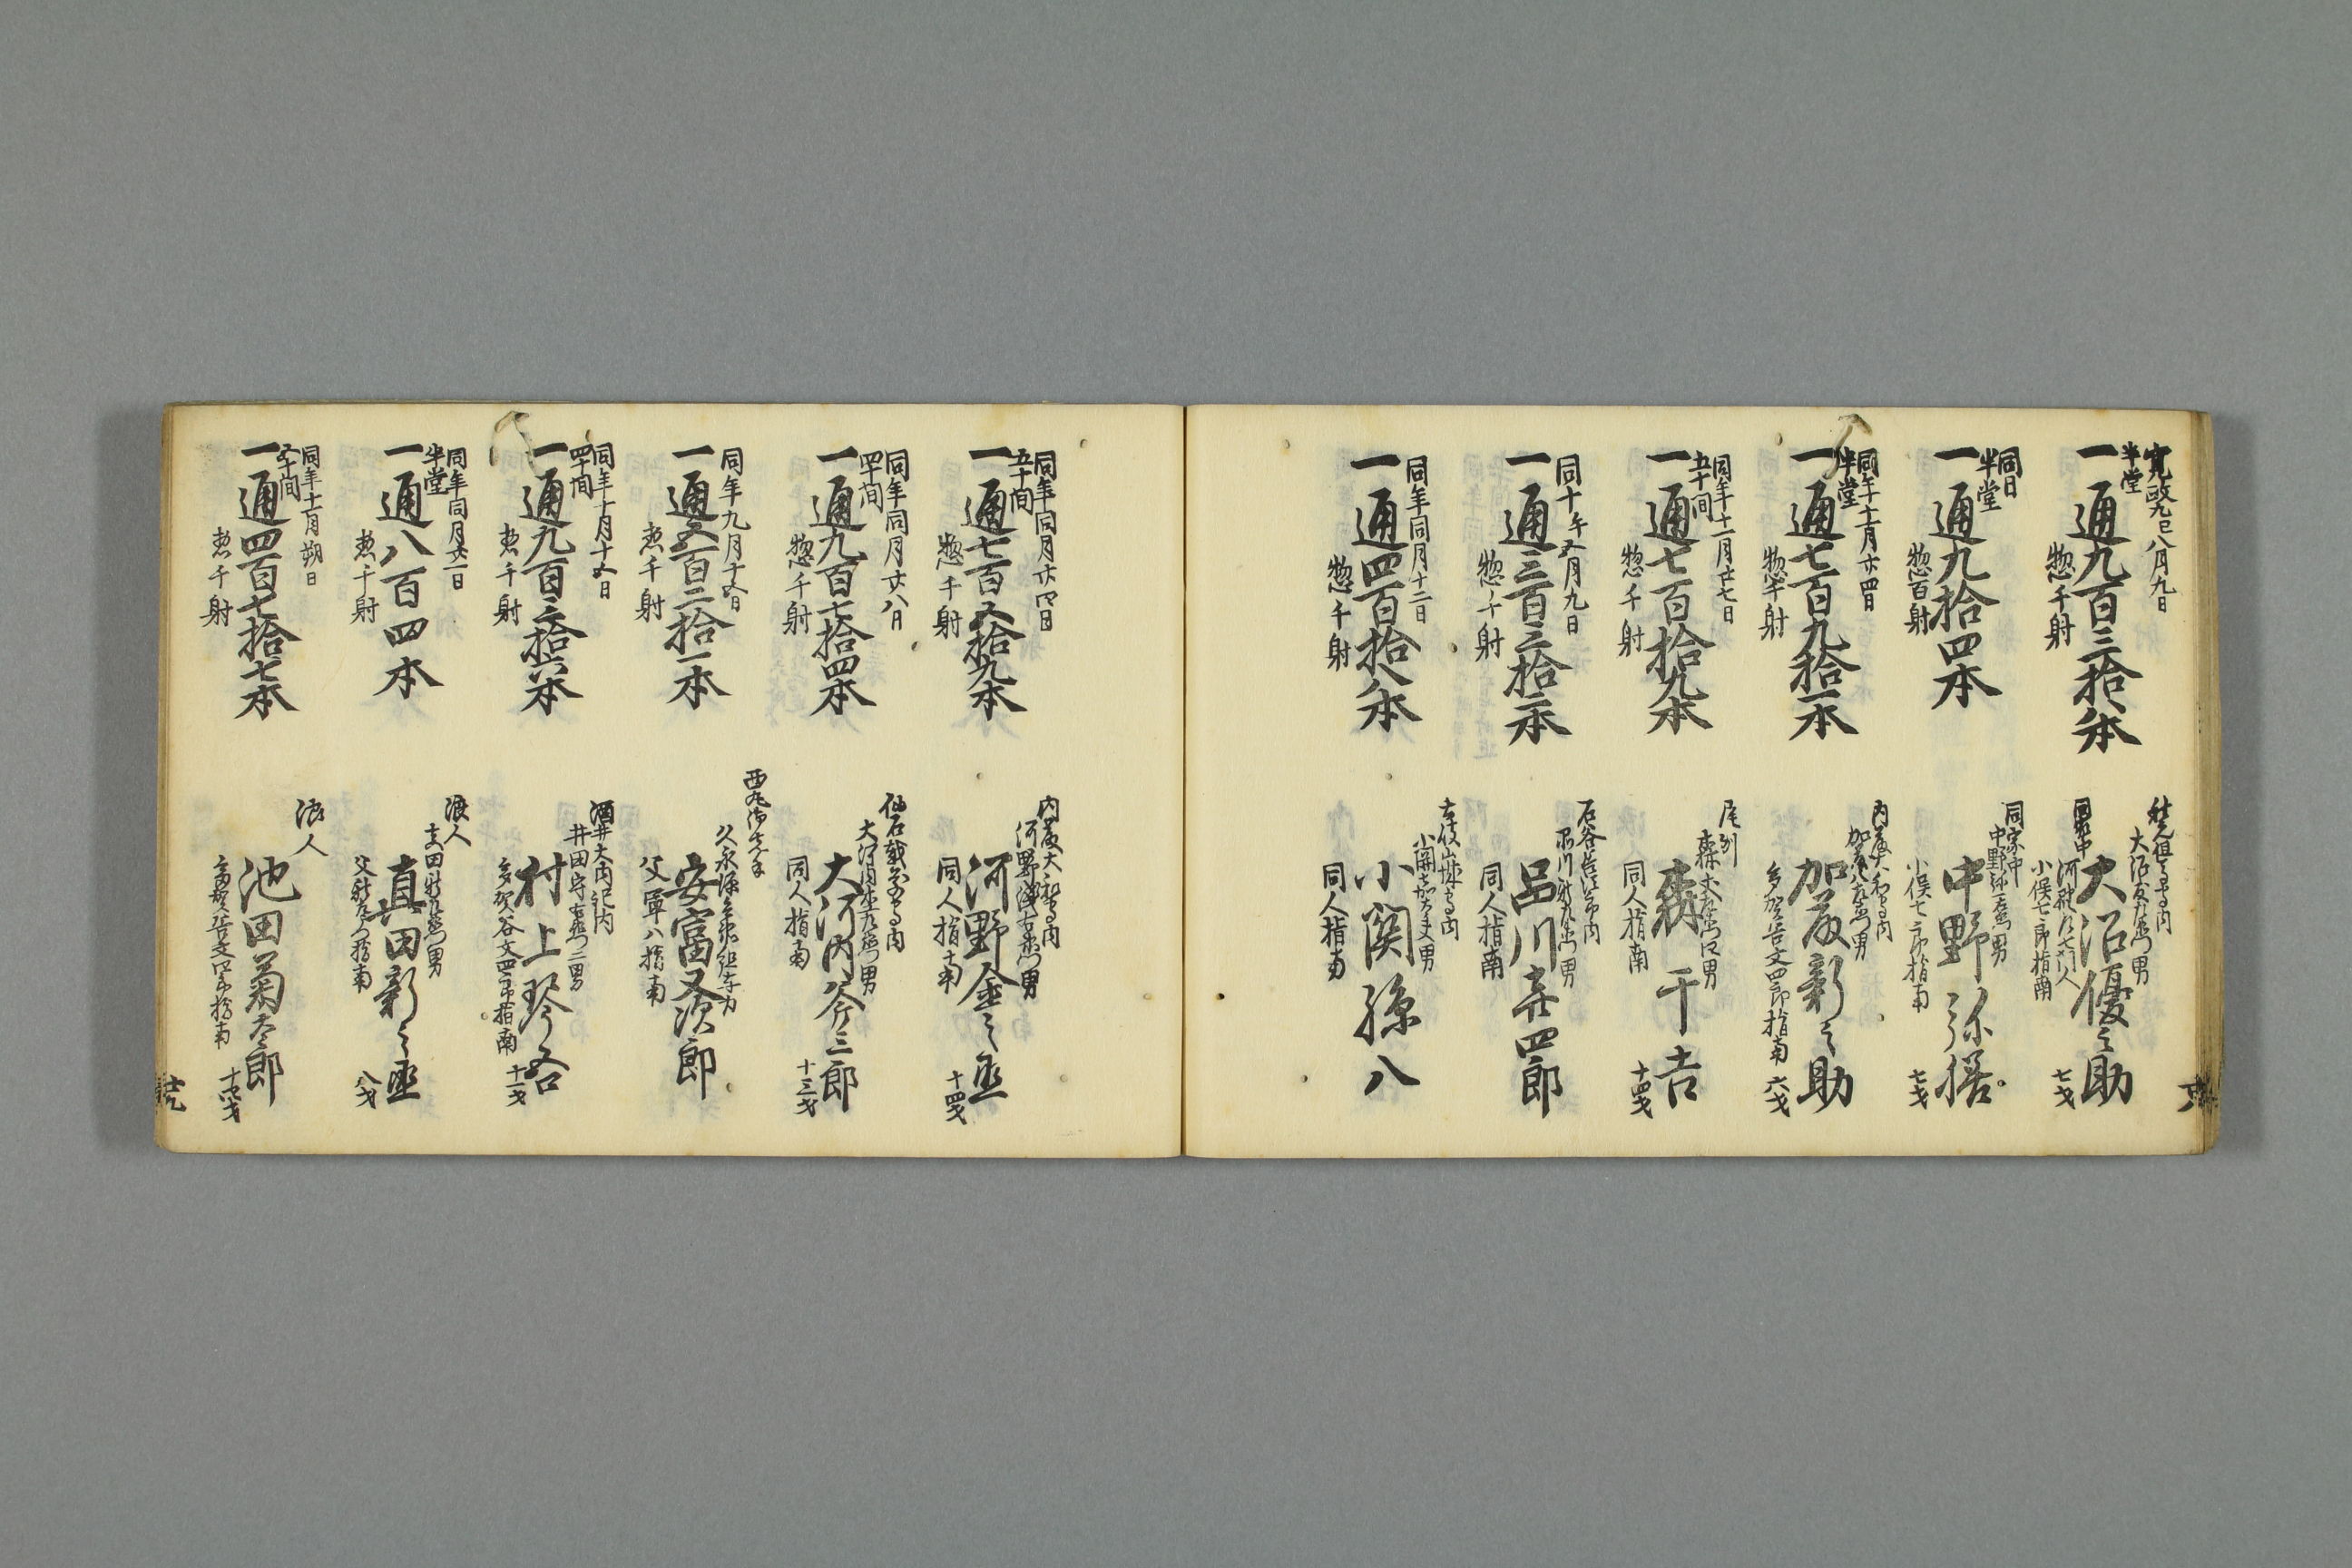 寛政九巳八月九日
半堂
一通九百三拾八本
惣千射
大沼優之助
小俣七郎指南
七才
同日
半堂
一通九拾四本
惣百射
同家中
中野弥膳
小俣七郎指南
七才
同年十一月廿四日
半堂
一通七百九拾一本
惣千射
加藤彰之助
多賀谷文四郎指南
六才
同年十一月廿七日
五十間
一通七百拾九本
惣千射
尾州
森干吉
同人指南
十四才
同十午五月九日
一通三百三拾一本
惣千射
呂川喜四郎
同人指南
同年同月十二日
一通四百拾八本
惣千射
小関孫八
同人指南
同年同月廿四日
五十間
一通七百五拾九本
惣千射
河野金之丞
同人指南
十四才
同年同月廿八日
四十間
一通九百七拾四本
惣千射
大河内斧三郎
同人指南
十三才
同年九月十五日
一通五百二拾一本
惣千射
安富又次郎
父軍八指南
同年十月十五日
四十間
一通九百三拾六本
惣千射
村上琴吾
多賀谷文四郎指南
十一才
同年同月廿一日
半堂
一通八百四本
惣千射
浪人
真田彰之丞
八才
同年十一月朔日
五十間
一通四百七拾七本
惣千射
浪人
池田菊太郎
多賀谷文四郎指南
十四才